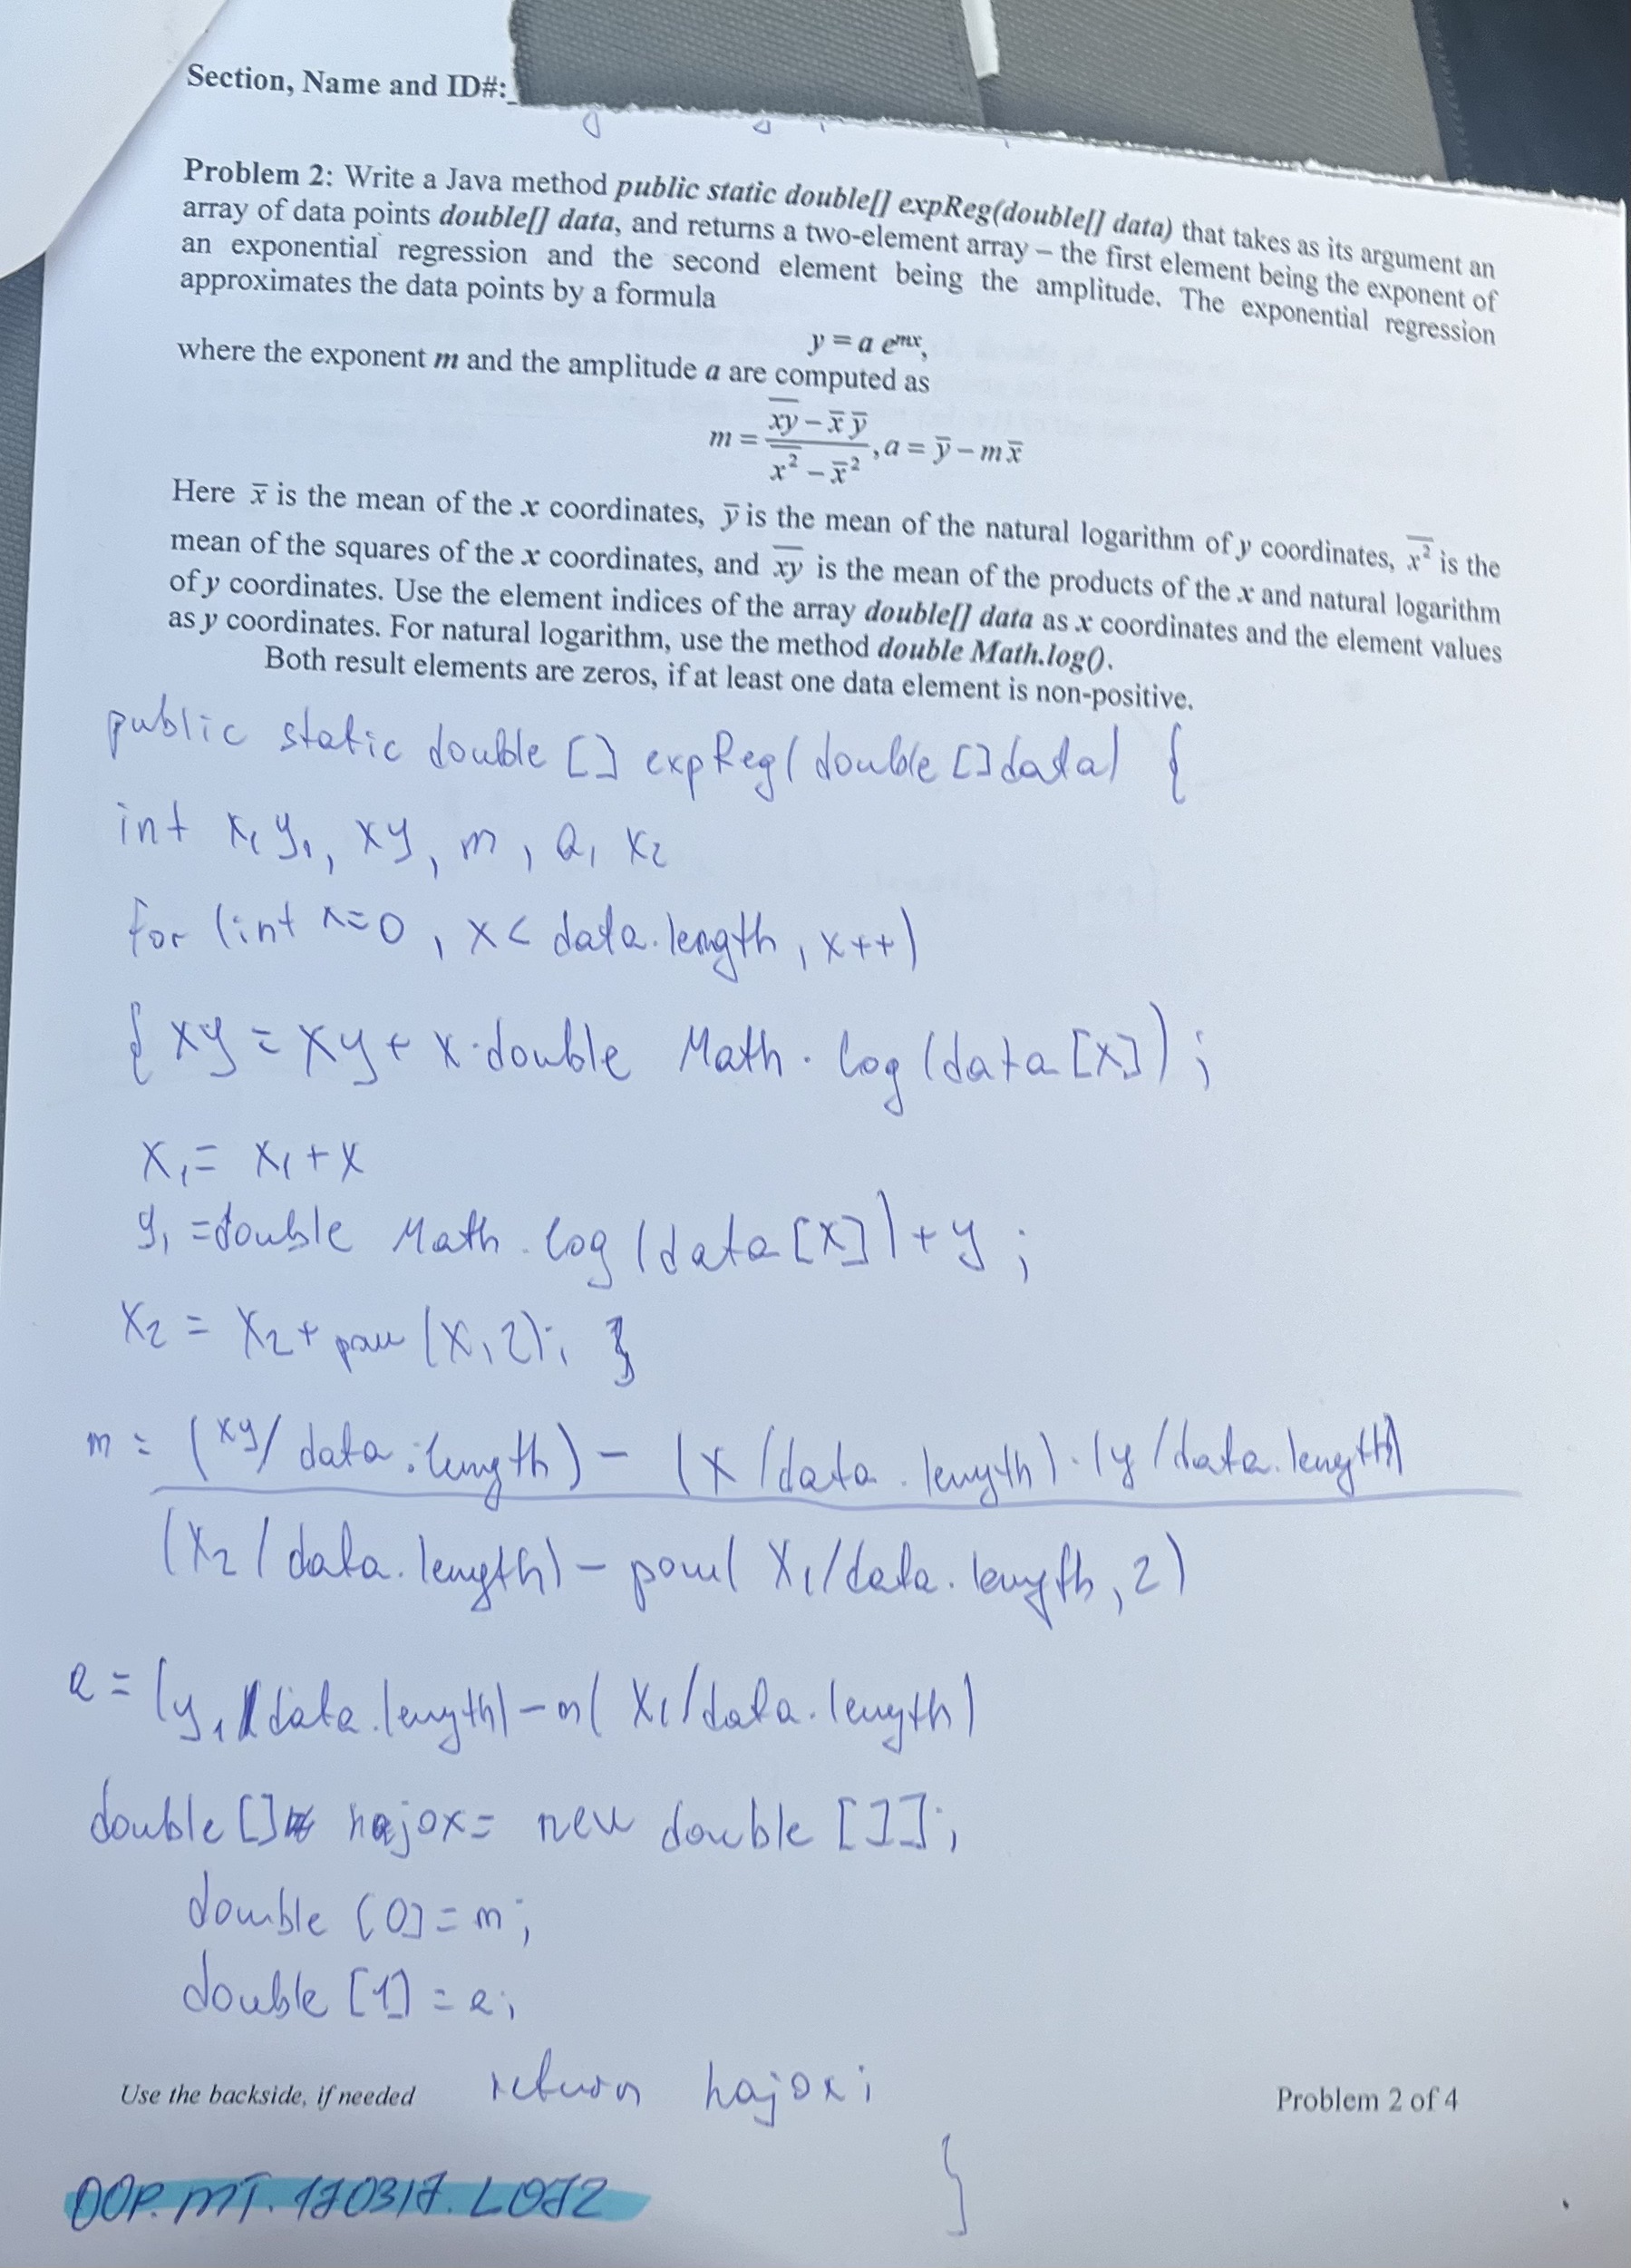 Section, Name and ID#:_
Problem 2: Write a Java method public static double[] expReg(double[] data) that takes as its argument an
array of data points double[] data, and returns a two-element array – the first element being the exponent of
an exponential regression and the second element being the amplitude. The exponential regression
approximates the data points by a formula
y = a e^{mx},
where the exponent m and the amplitude a are computed as
m = (\overline{xy} – x̄ ȳ) / (\overline{x²} – x̄²), a = ȳ – m x̄
Here x̄ is the mean of the x coordinates, ȳ is the mean of the natural logarithm of y coordinates, \overline{x²} is the
mean of the squares of the x coordinates, and \overline{xy} is the mean of the products of the x and natural logarithm
of y coordinates. Use the element indices of the array double[] data as x coordinates and the element values
as y coordinates. For natural logarithm, use the method double Math.log().
Both result elements are zeros, if at least one data element is non-positive.
public static double [] expReg( double [] data) {
int x₁ y₁, xy, m, a, x₂
for (int x=0, x< data.length, x++)
{ xy = xy + x·double Math.log(data[x]);
x₁ = x₁ + x
y₁ = double Math.log(data[x]) + y ;
x₂ = x₂ + pow (x,2); }
m = (xy/ data.length) – (x /data.length)·(y /data.length)
(x₂ / data.length) – pow( x₁/data.length, 2)
a = (y₁/data.length) – m( x₁/data.length)
double [] hajox = new double []];
double [0] = m;
double [1] = a;
return hajox;
Use the backside, if needed
Problem 2 of 4
}
OOP.MT.170317.L072